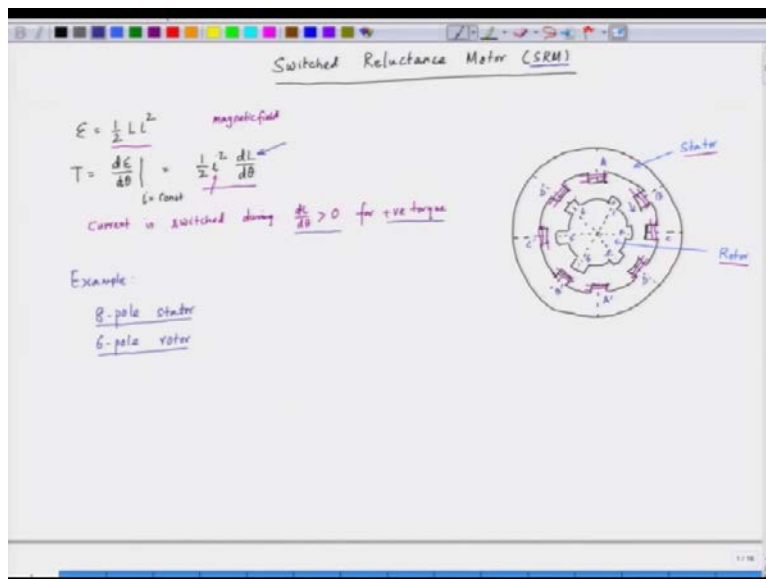 Switched Reluctance Motor (SRM)
ε = 1/2 L i² magnetic field
T = dε/dθ | i = Const = 1/2 i² dL/dθ
Current is switched during dL/dθ > 0 for +ve torque
Example:
8-pole stator
6-pole rotor
Stator
Rotor
A
B
C
D'
C'
B'
A'
1/16